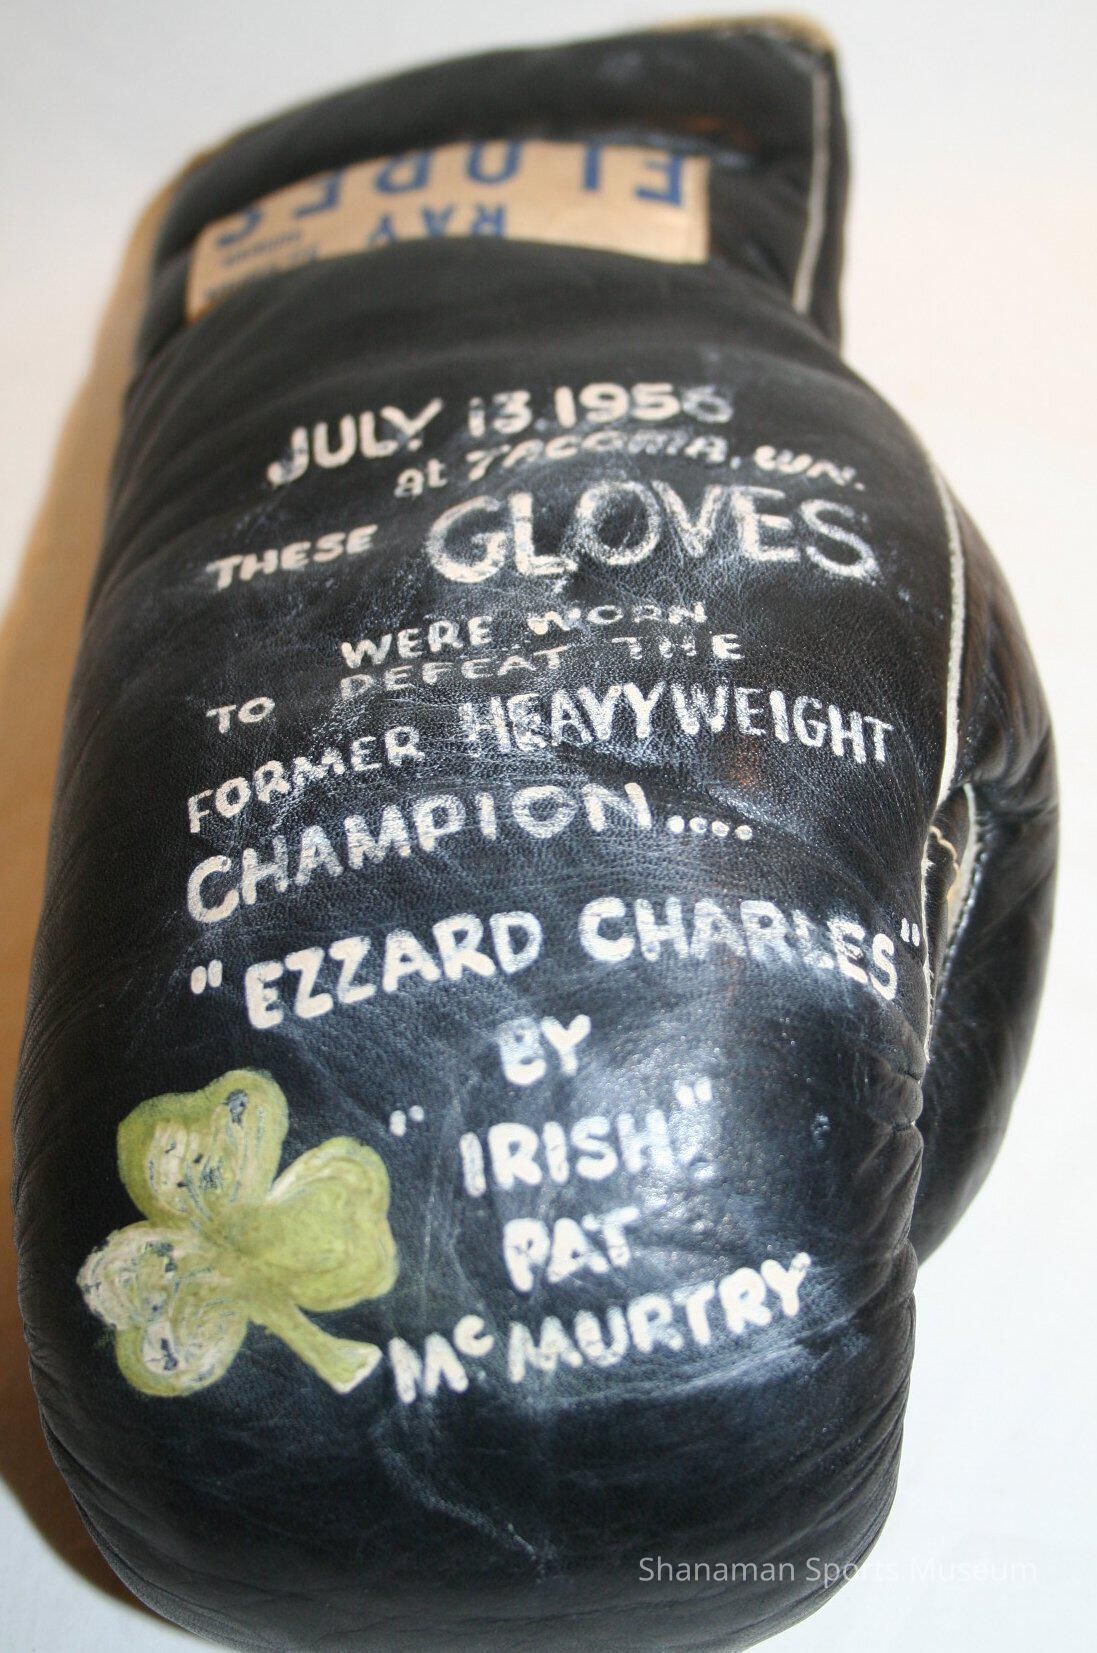 RAY
FLORES
JULY 13, 1956
at TACOMA, WN.
THESE GLOVES
WERE WORN
TO DEFEAT THE
FORMER HEAVYWEIGHT
CHAMPION....
"EZZARD CHARLES"
BY
"IRISH"
PAT
McMURTRY
Shanaman Sports Museum